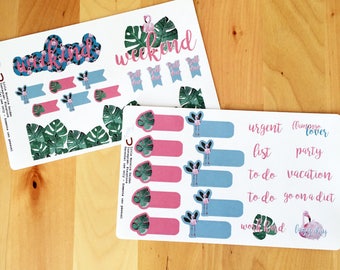 weekend
weekend
urgent
flamingo
lover
list
party
to do
vacation
to do
go on a diet
weekend